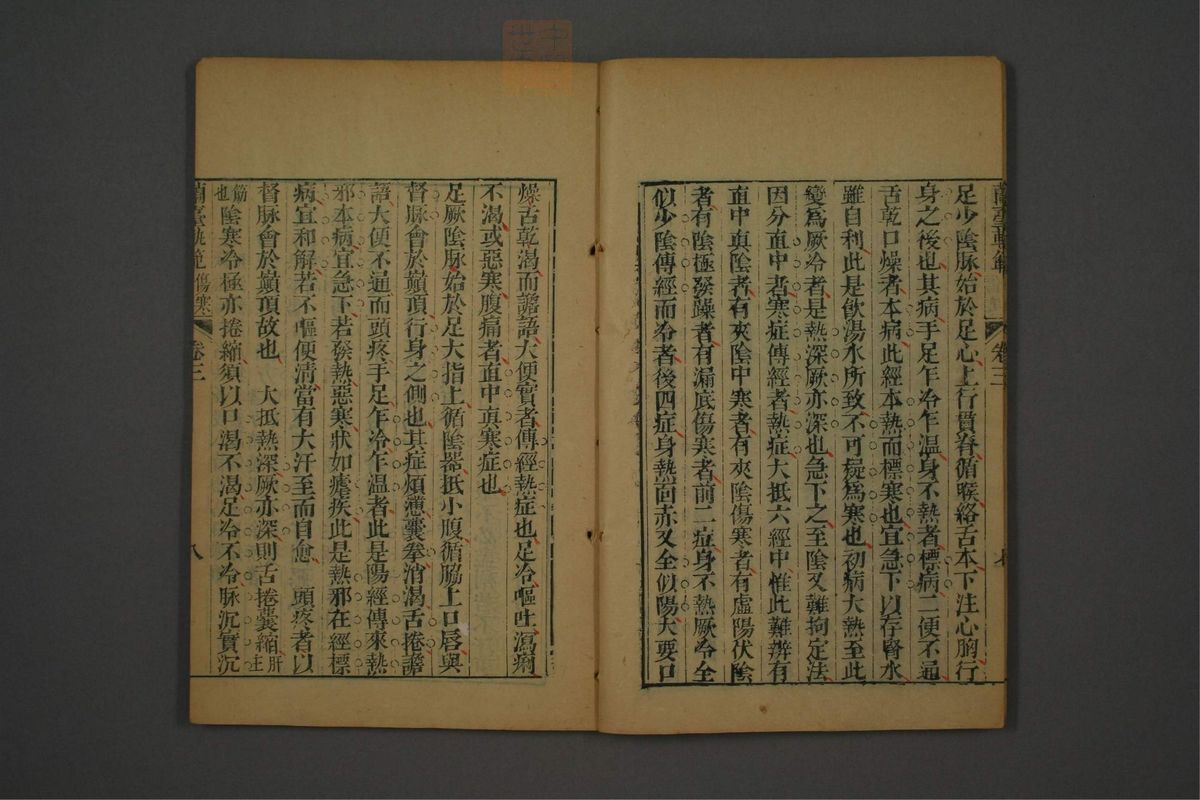 足少陰脉始於足心上行貫脊循喉絡舌本下注心胸行
身之後也其病手足乍冷乍温身不熱者標病二便不通
舌乾口燥者本病此經本熱而標寒也宜急下以存腎水
雖自利此是飲湯水所致不可疑爲寒也初病大熱至此
變爲厥冷者是熱深厥亦深也急下之至陰又難拘定法
因分直中者寒症傳經者熱症大抵六經中惟此難辨有
直中眞陰者有夾陰中寒者有夾陰傷寒者有虛陽伏陰
者有陰極發躁者有漏底傷寒者前二症身不熱厥冷全
似少陰傳經而冷者後四症身熱面赤又全似陽大要口
燥舌乾渴而譫語大便實者傳經熱症也足冷嘔吐瀉痢
不渴或惡寒腹痛者直中眞寒症也
足厥陰脉始於足大指上循陰器抵小腹循脇上口唇與
督脉會於巓頂行身之側也其症煩懣囊拳消渴舌捲譫
語大便不通而頭疼手足乍冷乍温者此是陽經傳來熱
邪本病宜急下若發熱惡寒狀如瘧疾此是熱邪在經標
病宜和解若不嘔便清當有大汗至而自愈 頭疼者以
督脉會於巓頂故也 大抵熱深厥亦深則舌捲囊縮肝主
筋也陰寒冷極亦捲縮須以口渴不渴足冷不冷脉沉實沉
蘭臺軌範傷寒 卷三 八